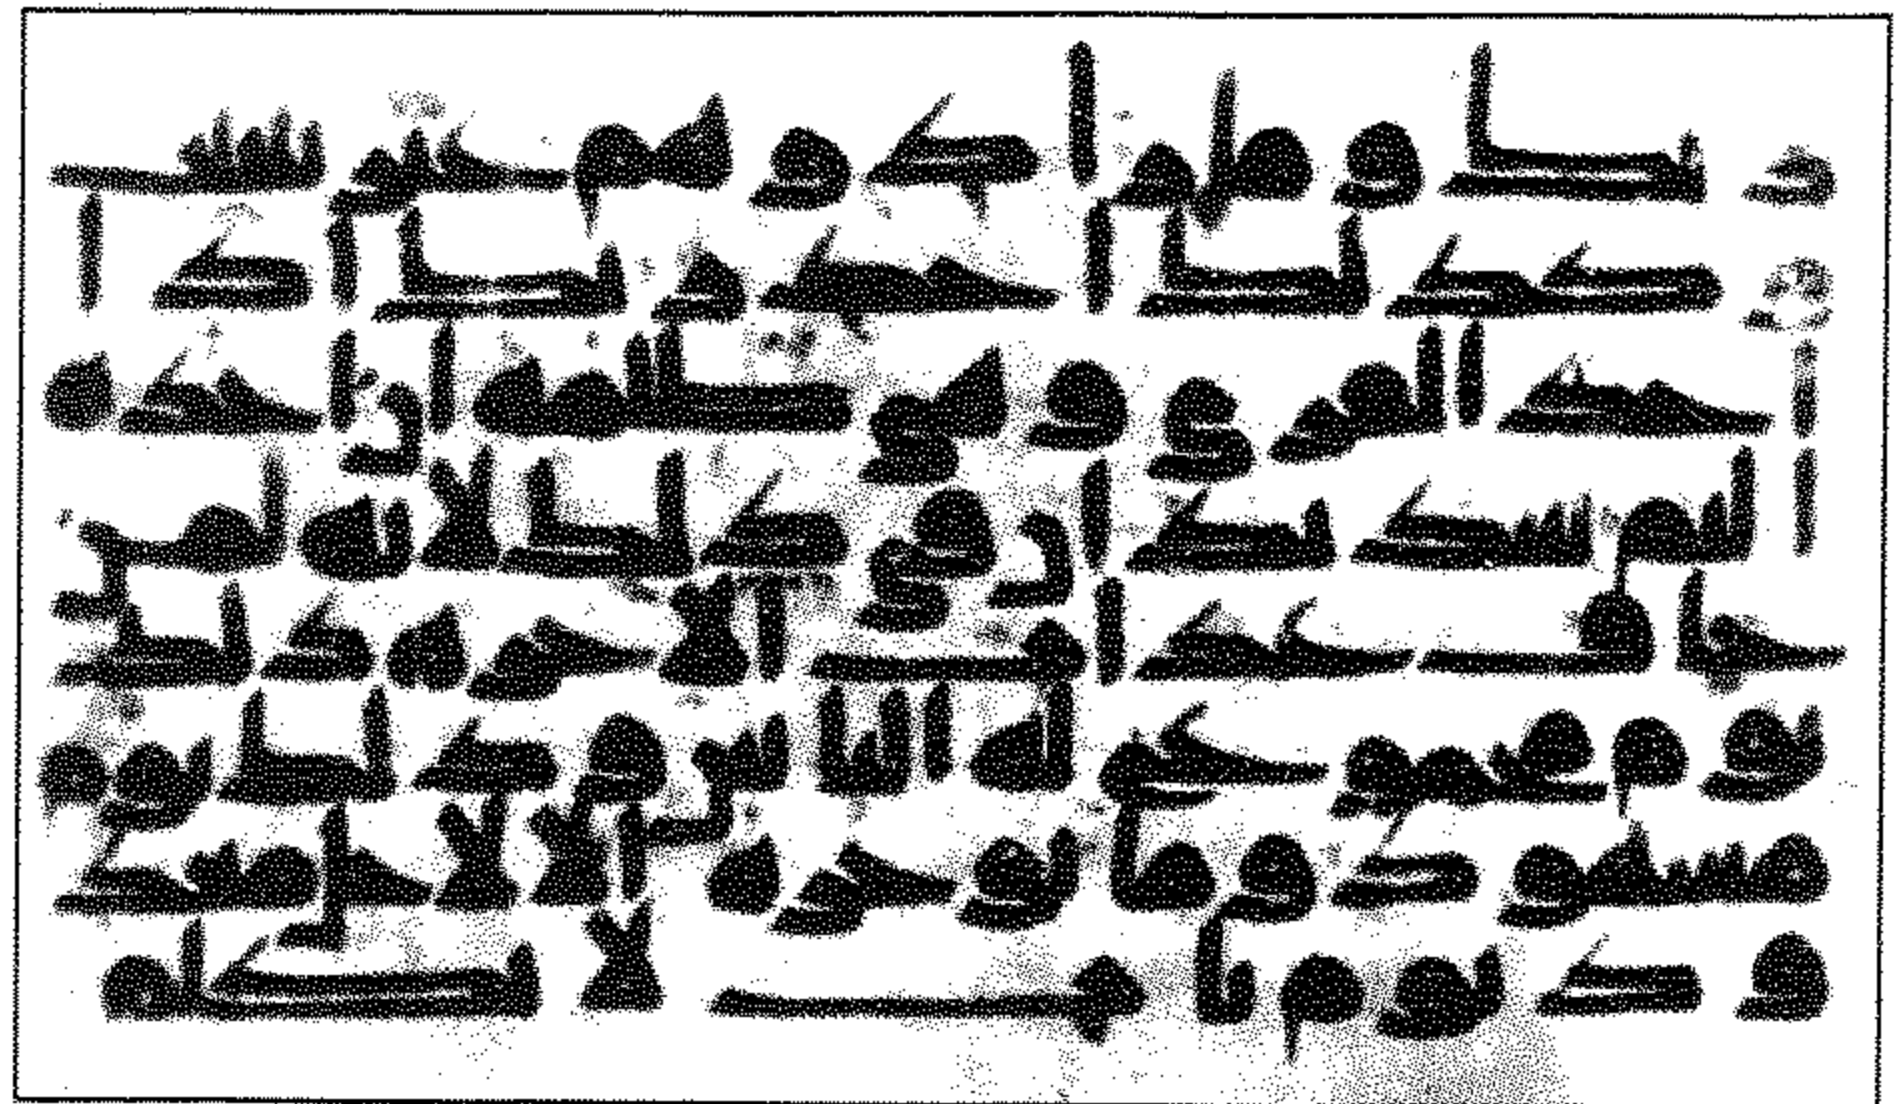 ربك وما زادوهم غير تتبيب
وكذلك اخذ ربك اذا
اخذ القرى وهي ظلمة ان اخذه
اليم شديد ان في ذلك لاية لمن
خاف عذاب الاخرة ذلك
يوم مجموع له الناس وذلك يوم
مشهود وما نوخره الا لاجل معد
ود يوم يات لا تكلم